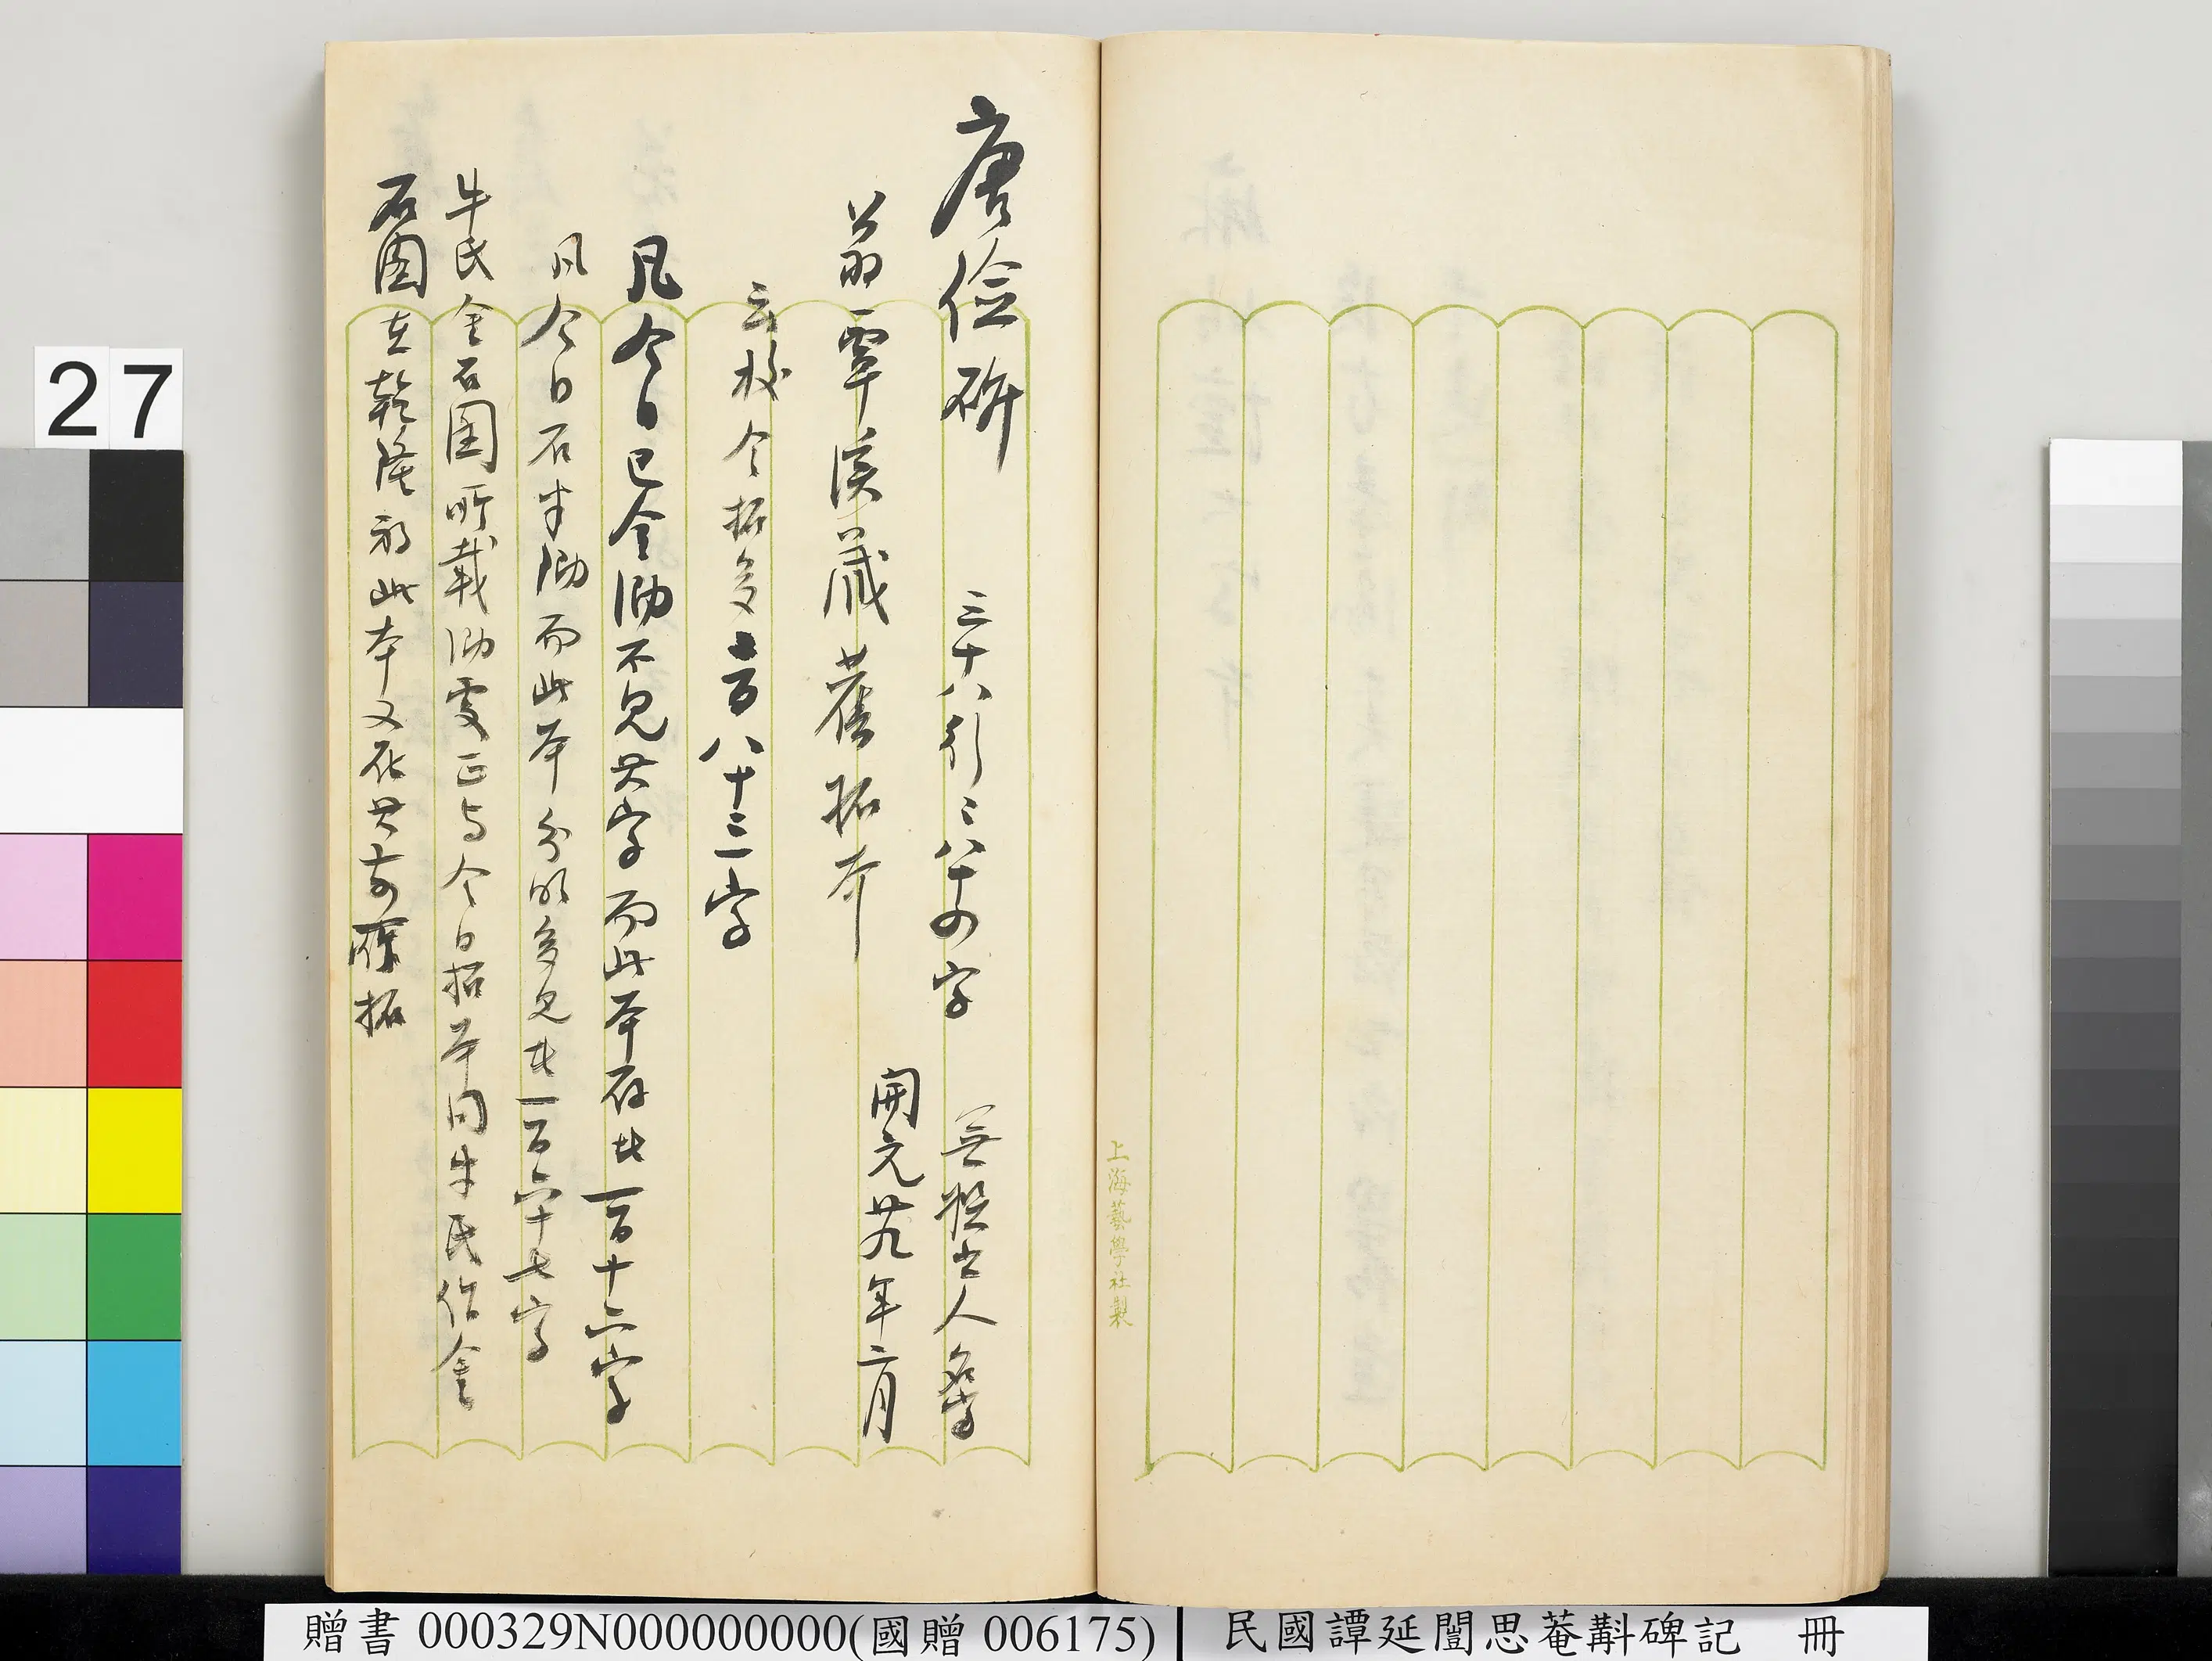 上海藝學社製
唐儉碑 三十八行二八十四字 無撰書人名字
開元廿九年二月
翁覃溪藏舊拓本
云校今拓多言八十三字
凡今日已全泐不見其字而此本存者一百十六字
凡今日石半泐而此本分明多見者一百六十七字
牛氏金石圖所載泐處正與今日拓本同牛氏作金
石圖在乾隆初此本又在其前 拓
27
贈書 000329N000000000(國贈 006175)
民國譚延闓思菴斠碑記 冊